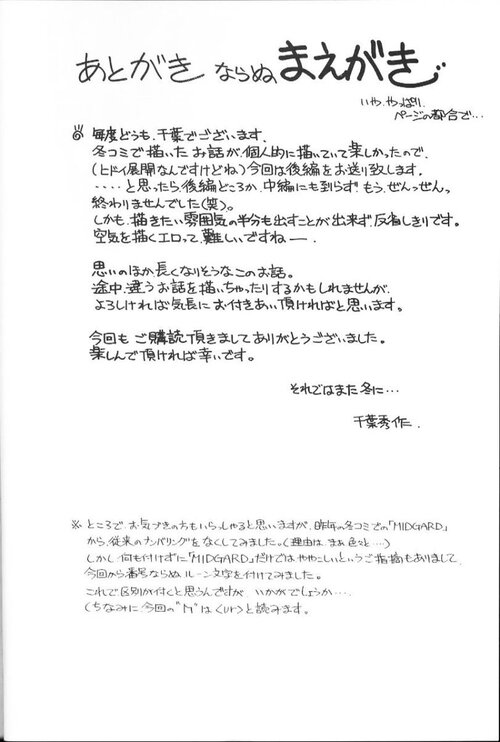 あとがき ならぬ まえがき
いや、やっぱり
ページの都合で…
毎度どうも、千葉でございます。
冬コミで描いた お話が、個人的に描いていて楽しかったので、
(ヒドイ展開なんですけどね) 今回は後編をお送り致します。
・・・・と思ったら、後編どころか、中編にも到らず もう、ぜんっぜん、
終わりませんでした(笑)。
しかも、描きたい雰囲気の半分も出すことが出来ず、反省しきりです。
空気を描くエロって、難しいですねー。
思いのほか 長くなりそうな このお話。
途中、違うお話を描いちゃったりするかもしれませんが、
よろしければ気長に お付きあい頂ければと思います。
今回も ご購読頂きまして ありがとうございました。
楽しんで頂ければ幸いです。
それではまた冬に…
千葉秀作.
※ ところで、お気づきの方もいらっしゃると思いますが、昨年の冬コミでの「MIDGARD」
から、従来のナンバリングを なくしてみました。(理由は、まあ 色々と…)
しかし 何も付けずに「MIDGARD」だけでは ややこしいというご指摘もありまして、
今回から番号ならぬ、ルーン文字を付けてみました。
これで区別が付くと思うんですが いかがでしょうか….
(ちなみに 今回の"ᚢ"は <Ur> と読みます。